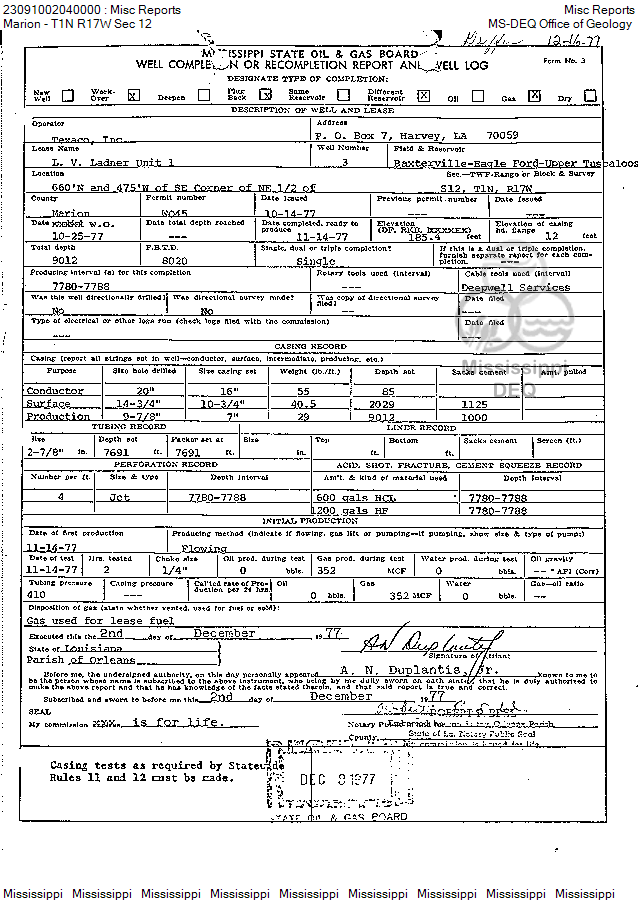 23091002040000 : Misc Reports Misc Reports
Marion - T1N R17W Sec 12 MS-DEQ Office of Geology
12-16-77
MISSISSIPPI STATE OIL & GAS BOARD
WELL COMPLETION OR RECOMPLETION REPORT AND WELL LOG Form No. 3
DESIGNATE TYPE OF COMPLETION:
New Well Work-Over X Deepen Plug Back X Same Reservoir Different Reservoir X Oil Gas X Dry
DESCRIPTION OF WELL AND LEASE
Operator Address
Texaco, Inc. P. O. Box 7, Harvey, LA 70059
Lease Name Well Number Field & Reservoir
L. V. Ladner Unit 1 3 Baxterville-Eagle Ford-Upper Tuscaloos
Location Sec.—TWP-Range or Block & Survey
660'N and 475'W of SE Corner of NE 1/2 of S12, T1N, R17W
County Permit number Date Issued Previous permit number Date Issued
Marion WO45 10-14-77 --- ---
Date W.O. Date total depth reached Date completed, ready to produce Elevation (DF, RKB, Elevation of casing hd. flange
10-25-77 --- 11-14-77 185.4 feet 12 feet
Total depth P.B.T.D. Single, dual or triple completion? If this is a dual or triple completion, furnish separate report for each completion.
9012 8020 Single ---
Producing interval (s) for this completion Rotary tools used (interval) Cable tools used (interval)
7780-7788 --- Deepwell Services
Was this well directionally drilled? Was directional survey made? Was copy of directional survey filed? Date filed
No No --- ---
Type of electrical or other logs run (check logs filed with the commission) Date filed
--- ---
CASING RECORD
Casing (report all strings set in well—conductor, surface, intermediate, producing, etc.)
Purpose Size hole drilled Size casing set Weight (lb./ft.) Depth set Sacks cement Amt. pulled
Conductor 20" 16" 55 85
Surface 14-3/4" 10-3/4" 40.5 2029 1125
Production 9-7/8" 7" 29 9012 1000
Mississippi
DEQ
TUBING RECORD LINER RECORD
Size Depth set Packer set at Size Top Bottom Sacks cement Screen (ft.)
2-7/8" in. 7691 ft. 7691 ft. in. ft. ft.
PERFORATION RECORD ACID, SHOT, FRACTURE, CEMENT SQUEEZE RECORD
Number per ft. Size & type Depth Interval Am't. & kind of material used Depth Interval
4 Jet 7780-7788 600 gals HCL 7780-7788
1200 gals HF 7780-7788
INITIAL PRODUCTION
Date of first production Producing method (indicate if flowing, gas lift or pumping—if pumping, show size & type of pump:)
11-14-77 Flowing
Date of test Hrs. tested Choke size Oil prod. during test Gas prod. during test Water prod. during test Oil gravity
11-14-77 2 1/4" 0 bbls. 352 MCF 0 bbls. -- ° API (Corr)
Tubing pressure Casing pressure Cal'ted rate of Production per 24 hrs Oil Gas Water Gas—oil ratio
410 --- 0 bbls. 352 MCF 0 --
Disposition of gas (state whether vented, used for fuel or sold):
Gas used for lease fuel
Executed this the 2nd day of December 1977
State of Louisiana Signature of Affiant
Parish of Orleans
Before me, the undersigned authority, on this day personally appeared A. N. Duplantis, Jr. known to me to
be the person whose name is subscribed to the above instrument, who being by me duly sworn on oath states, that he is duly authorized to
make the above report and that he has knowledge of the facts stated therein, and that said report is true and correct.
Subscribed and sworn to before me this 2nd day of December 1977
SEAL
My commission is for life. Notary Parish
County State of La. Notary Public Seal
My commission is issued for life
Casing tests as required by Statewide
Rules 11 and 12 must be made.
DEC 8 1977
STATE OIL & GAS BOARD
Mississippi Mississippi Mississippi Mississippi Mississippi Mississippi Mississippi Mississippi Mississippi